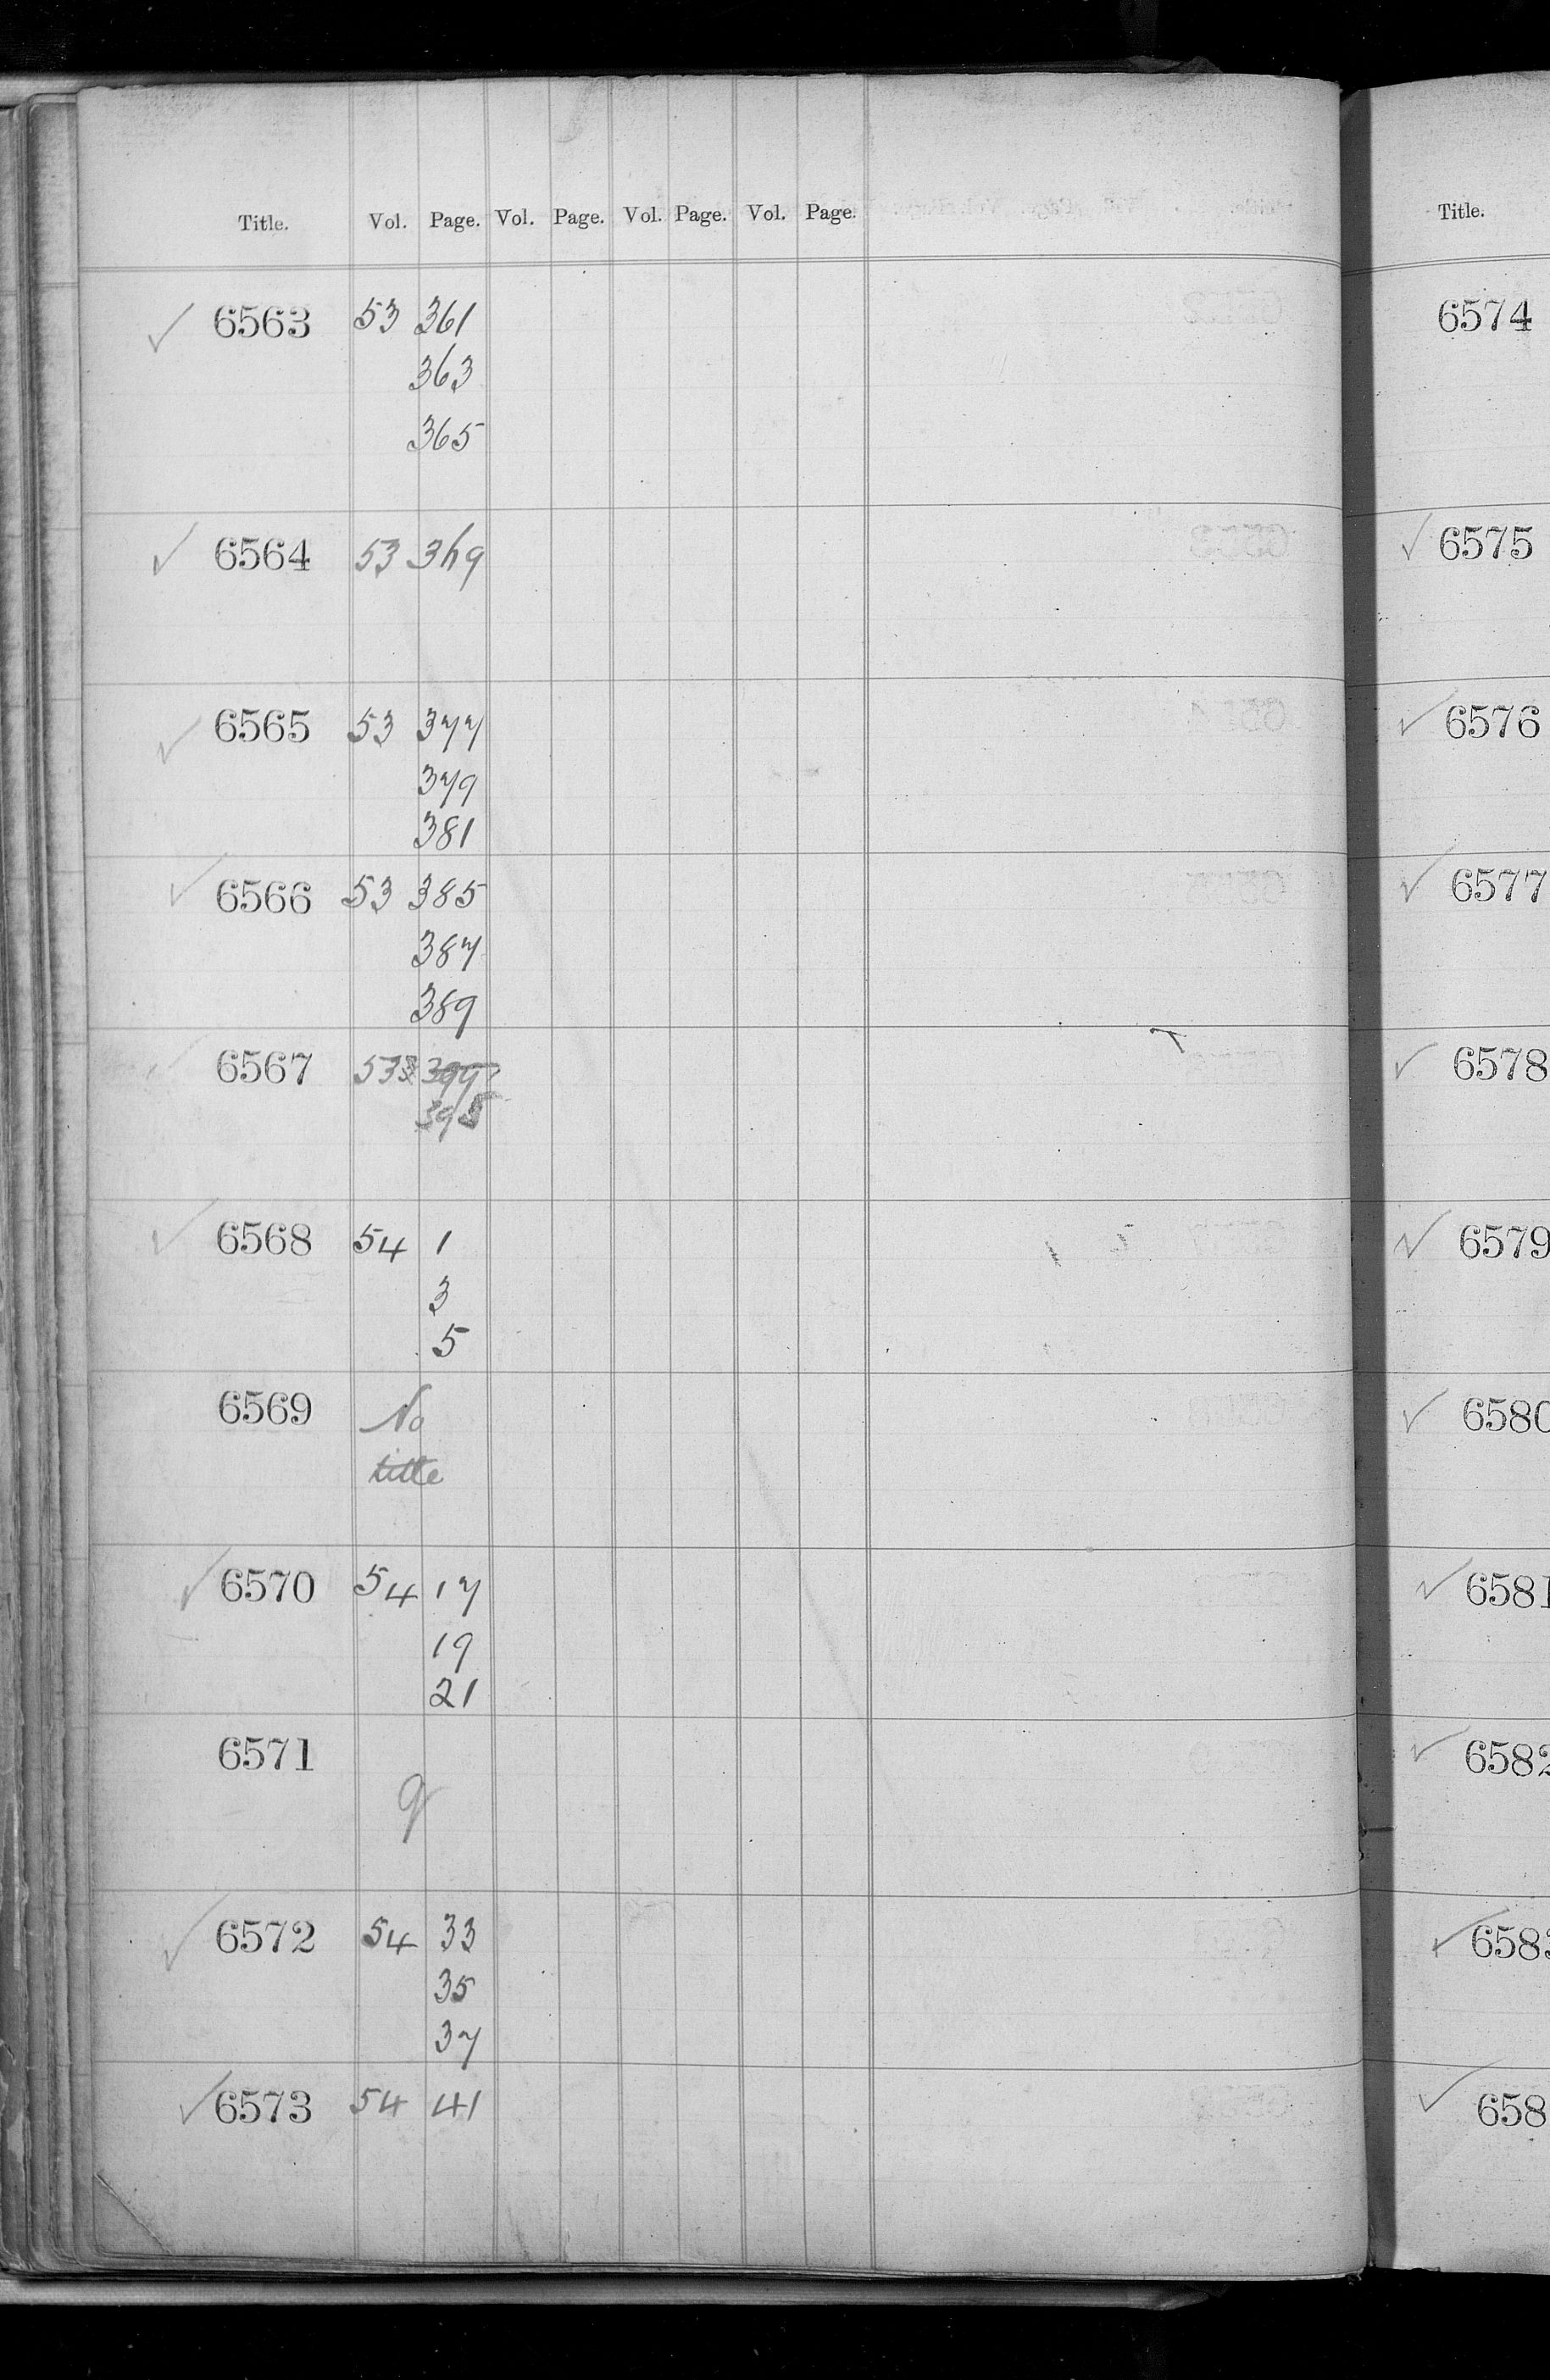 Title. Vol. Page. Vol. Page. Vol. Page. Vol. Page.
6563 53 361
363
365
6564 53 369
6565 53 377
379
381
6566 53 385
387
389
6567 53
6568 54 1
3
5
6569 No
title
6570 54 17
19
21
6571
6572 54 33
35
37
6573 54 41
Title.
6574
6575
6576
6577
6578
6579
6580
6581
6582
6583
658